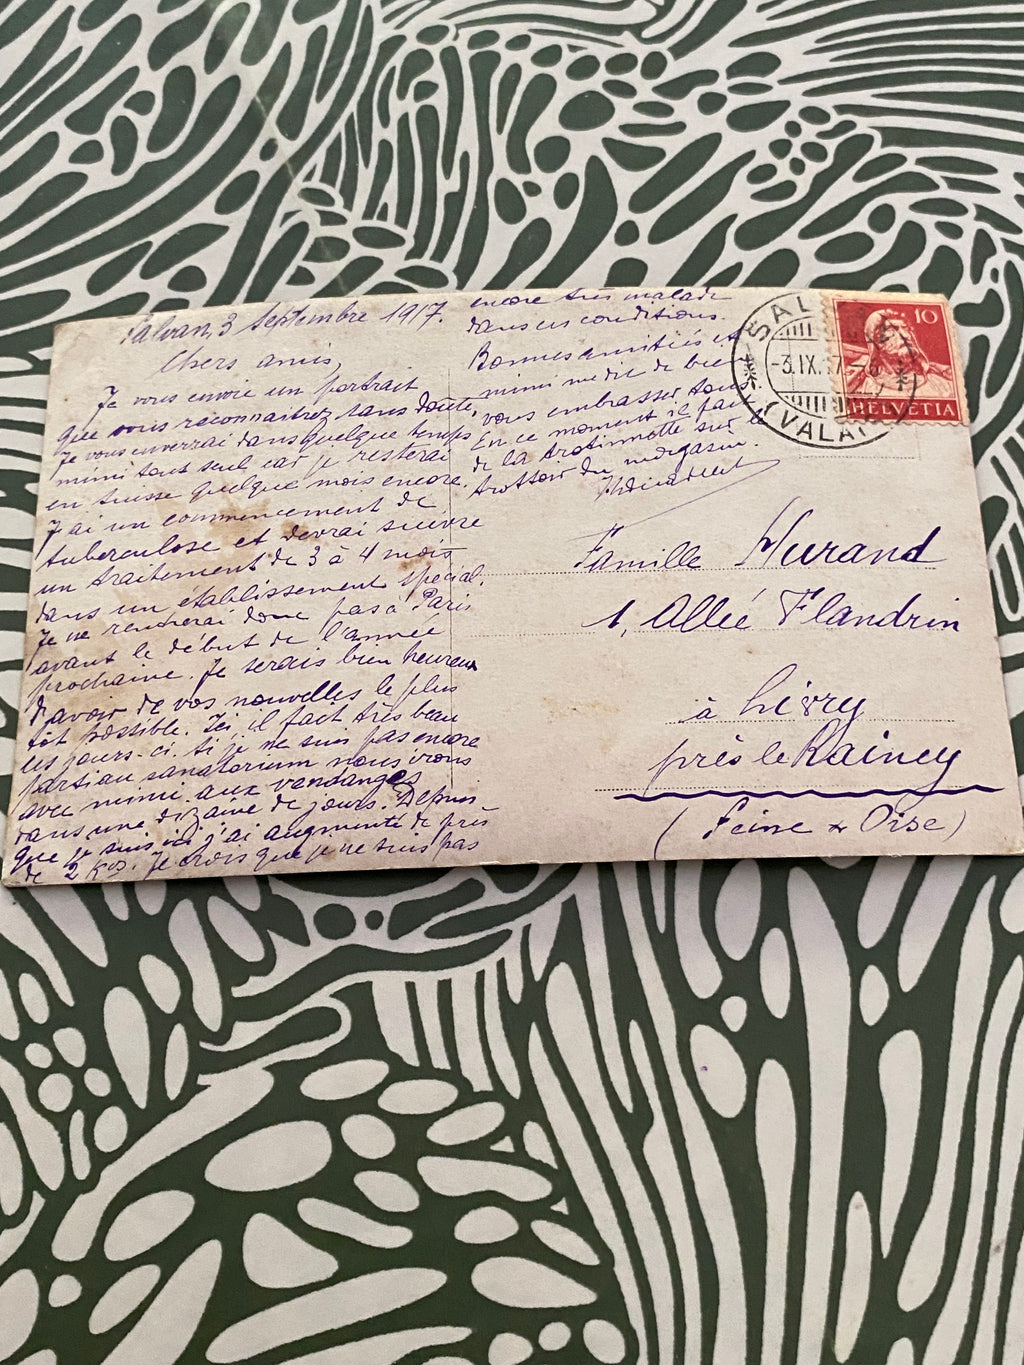 Salvan, 3 Septembre 1917.
Chers amis,
Je vous envoie un portrait
que vous reconnaitrez sans doute,
Je vous enverrai dans quelque temps
mimi tout seul car je resterai
en Suisse quelque mois encore.
J'ai un commencement de
tuberculose et devrai suivre
un traitement de 3 à 4 mois
dans un établissement spécial.
Je ne rentrerai donc pas à Paris
avant le début de l'année
prochaine. Je serais bien heureux
d'avoir de vos nouvelles le plus
tôt possible. Ici, il fait très beau
ces jours-ci. Si je ne suis pas encore
parti au sanatorium nous irons
avec mimi aux vendanges
dans une dizaine de jours. Depuis
que je suis ici j'ai augmenté de près
de 2 kgs. Je crois que je ne suis pas
encore très malade
dans ces conditions.
Bonnes amitiés et
mimi me dit de bien
vous embrasser tous
En ce moment il fait
de la trotinnette sur le
trottoir du magasin.
SALVAN
(VALAIS)
-3.IX.17.-
10
HELVETIA
Famille Murand
1, Allée Flandrin
à Livry
près le Rainey
(Seine & Oise)